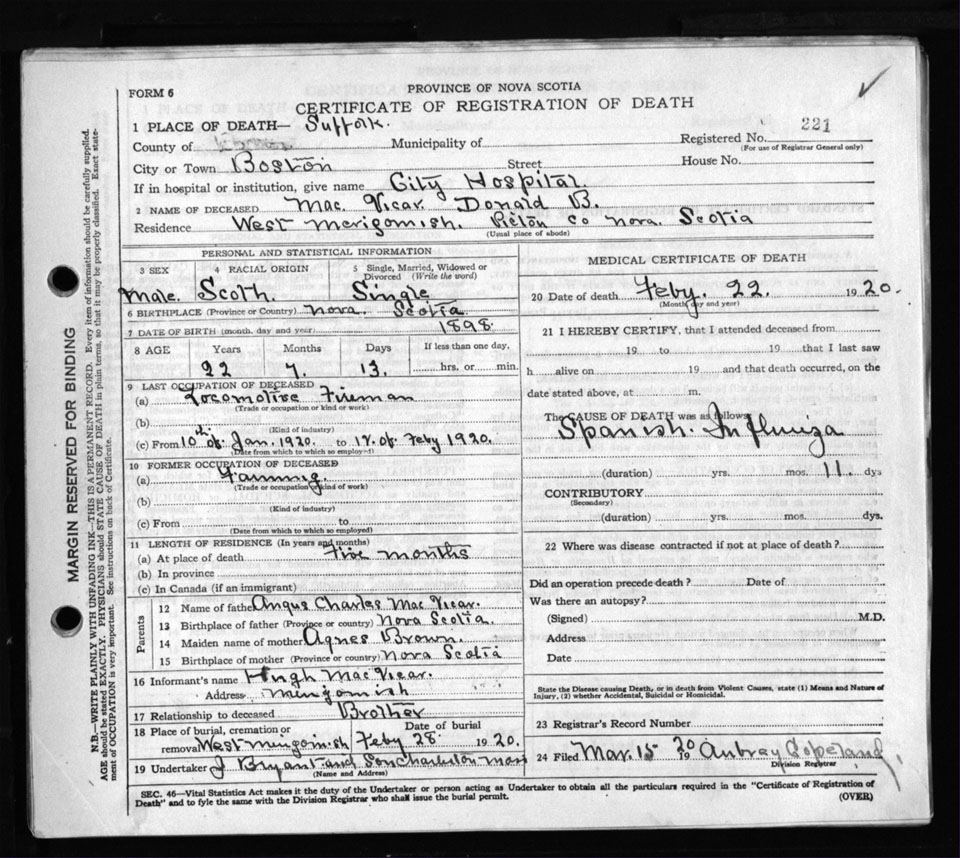 FORM 6
PROVINCE OF NOVA SCOTIA
CERTIFICATE OF REGISTRATION OF DEATH
1 PLACE OF DEATH— Suffolk.
County of Municipality of Registered No. 221
(For use of Registrar General only)
City or Town Boston Street House No.
If in hospital or institution, give name City Hospital.
2 NAME OF DECEASED Mac. Vicar Donald B.
Residence West Merigomish. Pictou Co Nova. Scotia
(Usual place of abode)
PERSONAL AND STATISTICAL INFORMATION
3 SEX 4 RACIAL ORIGIN 5 Single, Married, Widowed or Divorced (Write the word)
Male. Scoth. Single
6 BIRTHPLACE (Province or Country) Nova. Scotia
7 DATE OF BIRTH (month, day and year) 1898.
8 AGE Years Months Days If less than one day,
22 7. 13. hrs. or min.
9 LAST OCCUPATION OF DECEASED
(a) Locomotive Fireman
(Trade or occupation or kind or work)
(b)
(Kind of industry)
(c) From 10th of Jan. 1920. to 17. of Feby 1920.
(Date from which to which so employed)
10 FORMER OCCUPATION OF DECEASED
(a) Farming.
(Trade or occupation or kind of work)
(b)
(Kind of industry)
(c) From to
(Date from which to which so employed)
11 LENGTH OF RESIDENCE (In years and months)
(a) At place of death Five months
(b) In province
(c) In Canada (if an immigrant)
Parents
12 Name of father Angus Charles Mac Vicar.
13 Birthplace of father (Province or country) Nova Scotia.
14 Maiden name of mother Agnes Brown.
15 Birthplace of mother (Province or country) Nova Scotia
16 Informant's name Hugh Mac Vicar.
Address Merigomish
17 Relationship to deceased Brother
18 Place of burial, cremation or Date of burial
removal West Merigomish Feby 28 1920.
19 Undertaker J Bryant and Son Charleston Mass
(Name and Address)
MEDICAL CERTIFICATE OF DEATH
20 Date of death Feby. 22. 1920.
(Month, day and year)
21 I HEREBY CERTIFY, that I attended deceased from
19 to 19 that I last saw
h alive on 19 and that death occurred, on the
date stated above, at m.
The CAUSE OF DEATH was as follows
Spanish. Influinza
(duration) yrs. mos. 11. dys
CONTRIBUTORY
(Secondary)
(duration) yrs. mos. dys.
22 Where was disease contracted if not at place of death?
Did an operation precede death? Date of
Was there an autopsy?
(Signed) M.D.
Address
Date
State the Disease causing Death, or in death from Violent Causes, state (1) Means and Nature of
Injury, (2) whether Accidental, Suicidal or Homicidal.
23 Registrar's Record Number
24 Filed Mar. 15 1920 Aubrey Copeland
Division Registrar
SEC. 46—Vital Statistics Act makes it the duty of the Undertaker or person acting as Undertaker to obtain all the particulars required in the "Certificate of Registration of
Death" and to fyle the same with the Division Registrar who shall issue the burial permit. (OVER)
MARGIN RESERVED FOR BINDING
N.B.—WRITE PLAINLY WITH UNFADING INK—THIS IS A PERMANENT RECORD. Every item of information should be carefully supplied.
AGE should be stated EXACTLY. PHYSICIANS should STATE CAUSE OF DEATH in plain terms, so that it may be properly classified. Exact state-
ment of OCCUPATION is very important. See instructions on back of Certificate.